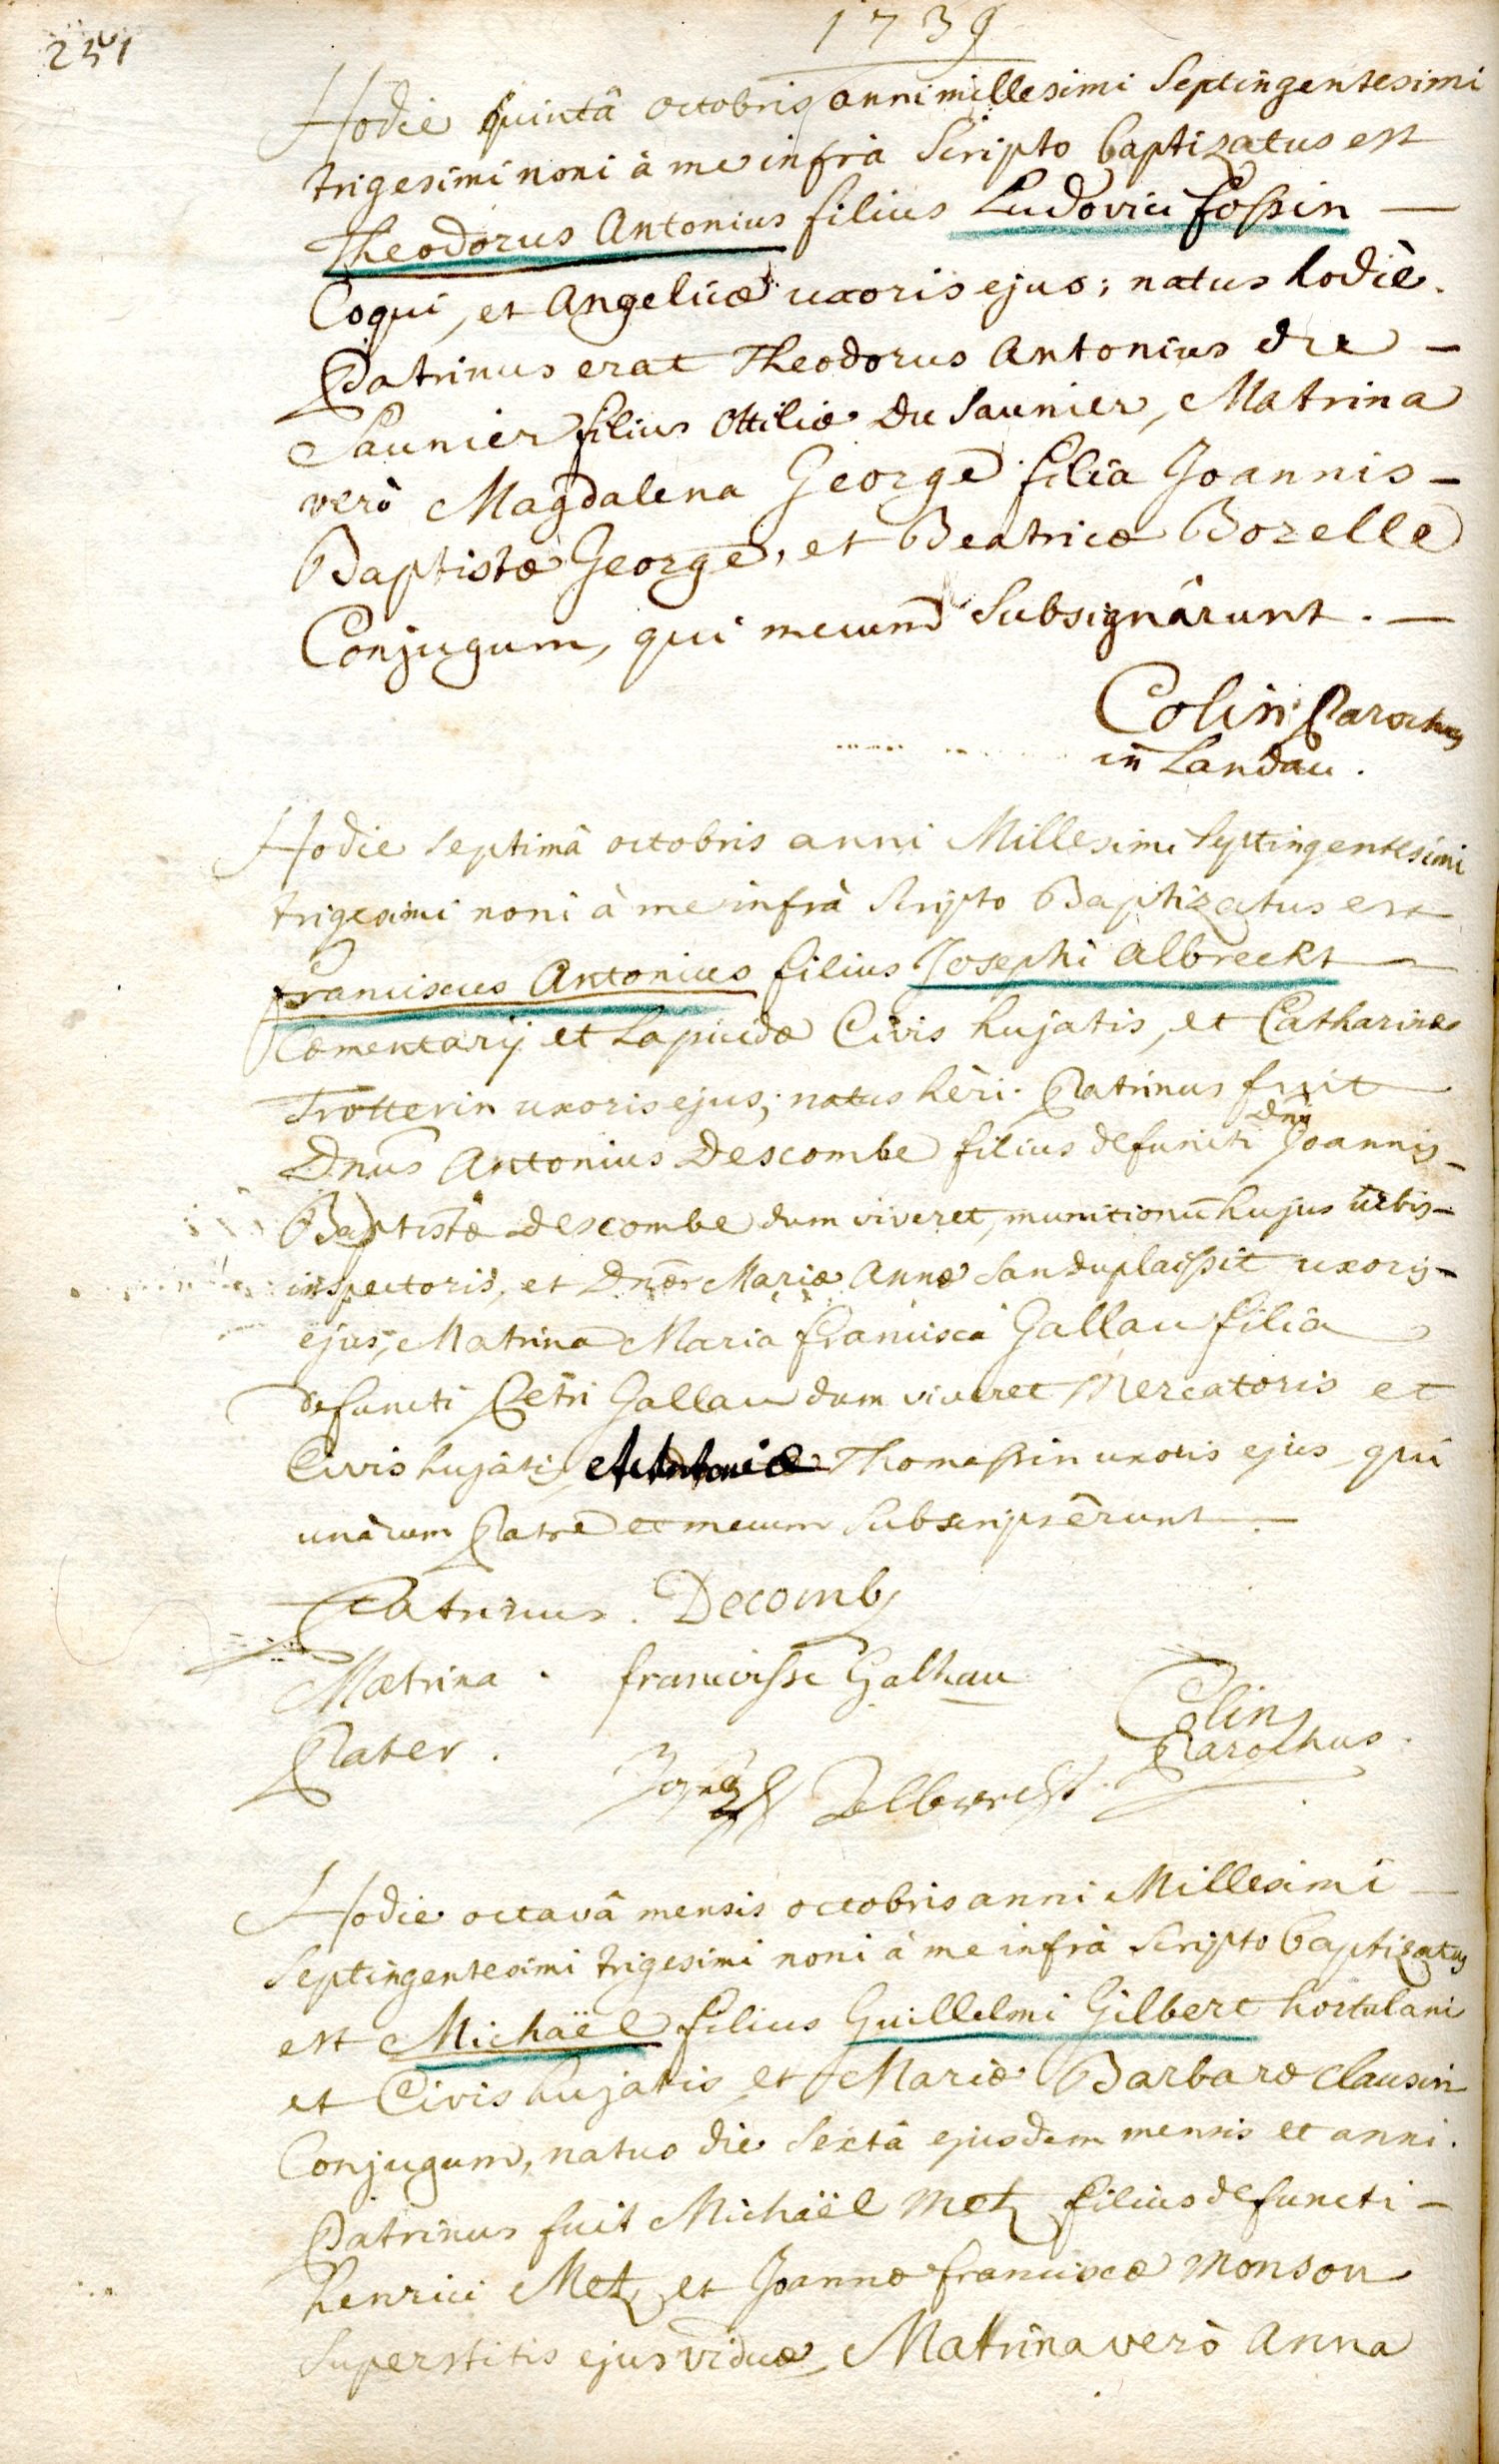 1739
251
Hodie quintâ octobris anni millesimi Septingentesimi
trigesimi noni à me infrà Scripto baptizatus est
Theodorus Antonius filius Ludovici fossin —
Coqui, et Angelicæ uxoris ejus; natus hodiè.
Patrinus erat Theodorus Antonius du —
Saunier filius Ottiliæ Du Saunier, Matrina
verò Magdalena George filia Joannis —
Baptistæ George, et Beatricæ Bozelle
Conjugum, qui mecum Subsignârunt. —
Colin Parochus
in Landau.
Hodie Septimâ octobris anni Millesimi Septingentesimi
trigesimi noni à me infrà Scripto Baptizatus est
franciscus Antonius filius Josephi Albrecht —
Cæmentarij et Lapicidæ Civis hujatis, et Catharinæ
Trotterin uxoris ejus; natus hèri. Patrinus fuit
Dnûs Antonius Descombe filius defuncti Dni Joannis —
Baptistæ Descombe dum viveret, munitionũ hujus urbis —
inspectoris, et Dnæ Mariæ Annæ Sanduplaissit uxoris —
ejus, Matrina Maria francisca Gallau filia
defuncti Petri Gallau dum viveret Mercatoris et
Civis hujatis, et Antoniæ Thomassin uxoris ejus, qui
unà cum Patre et mecum Subscripsêrunt. —
Patrinus. Decomb
Matrina. francoisse Galhau
Colin
Parochus.
Pater.
Hodie octavâ mensis octobris anni Millesimi —
Septingentesimi trigesimi noni à me infrà Scripto baptizatus
est Michaël filius Guillelmi Gilbert hortulani
et Civis hujatis, et Mariæ Barbaræ Clausin
Conjugum, natus die Sextâ ejusdem mensis et anni.
Patrinus fuit Michaël Metz filius defuncti —
henrici Metz, et Joannæ franciscæ Monson
Superstitis ejus viduæ, Matrina verò Anna